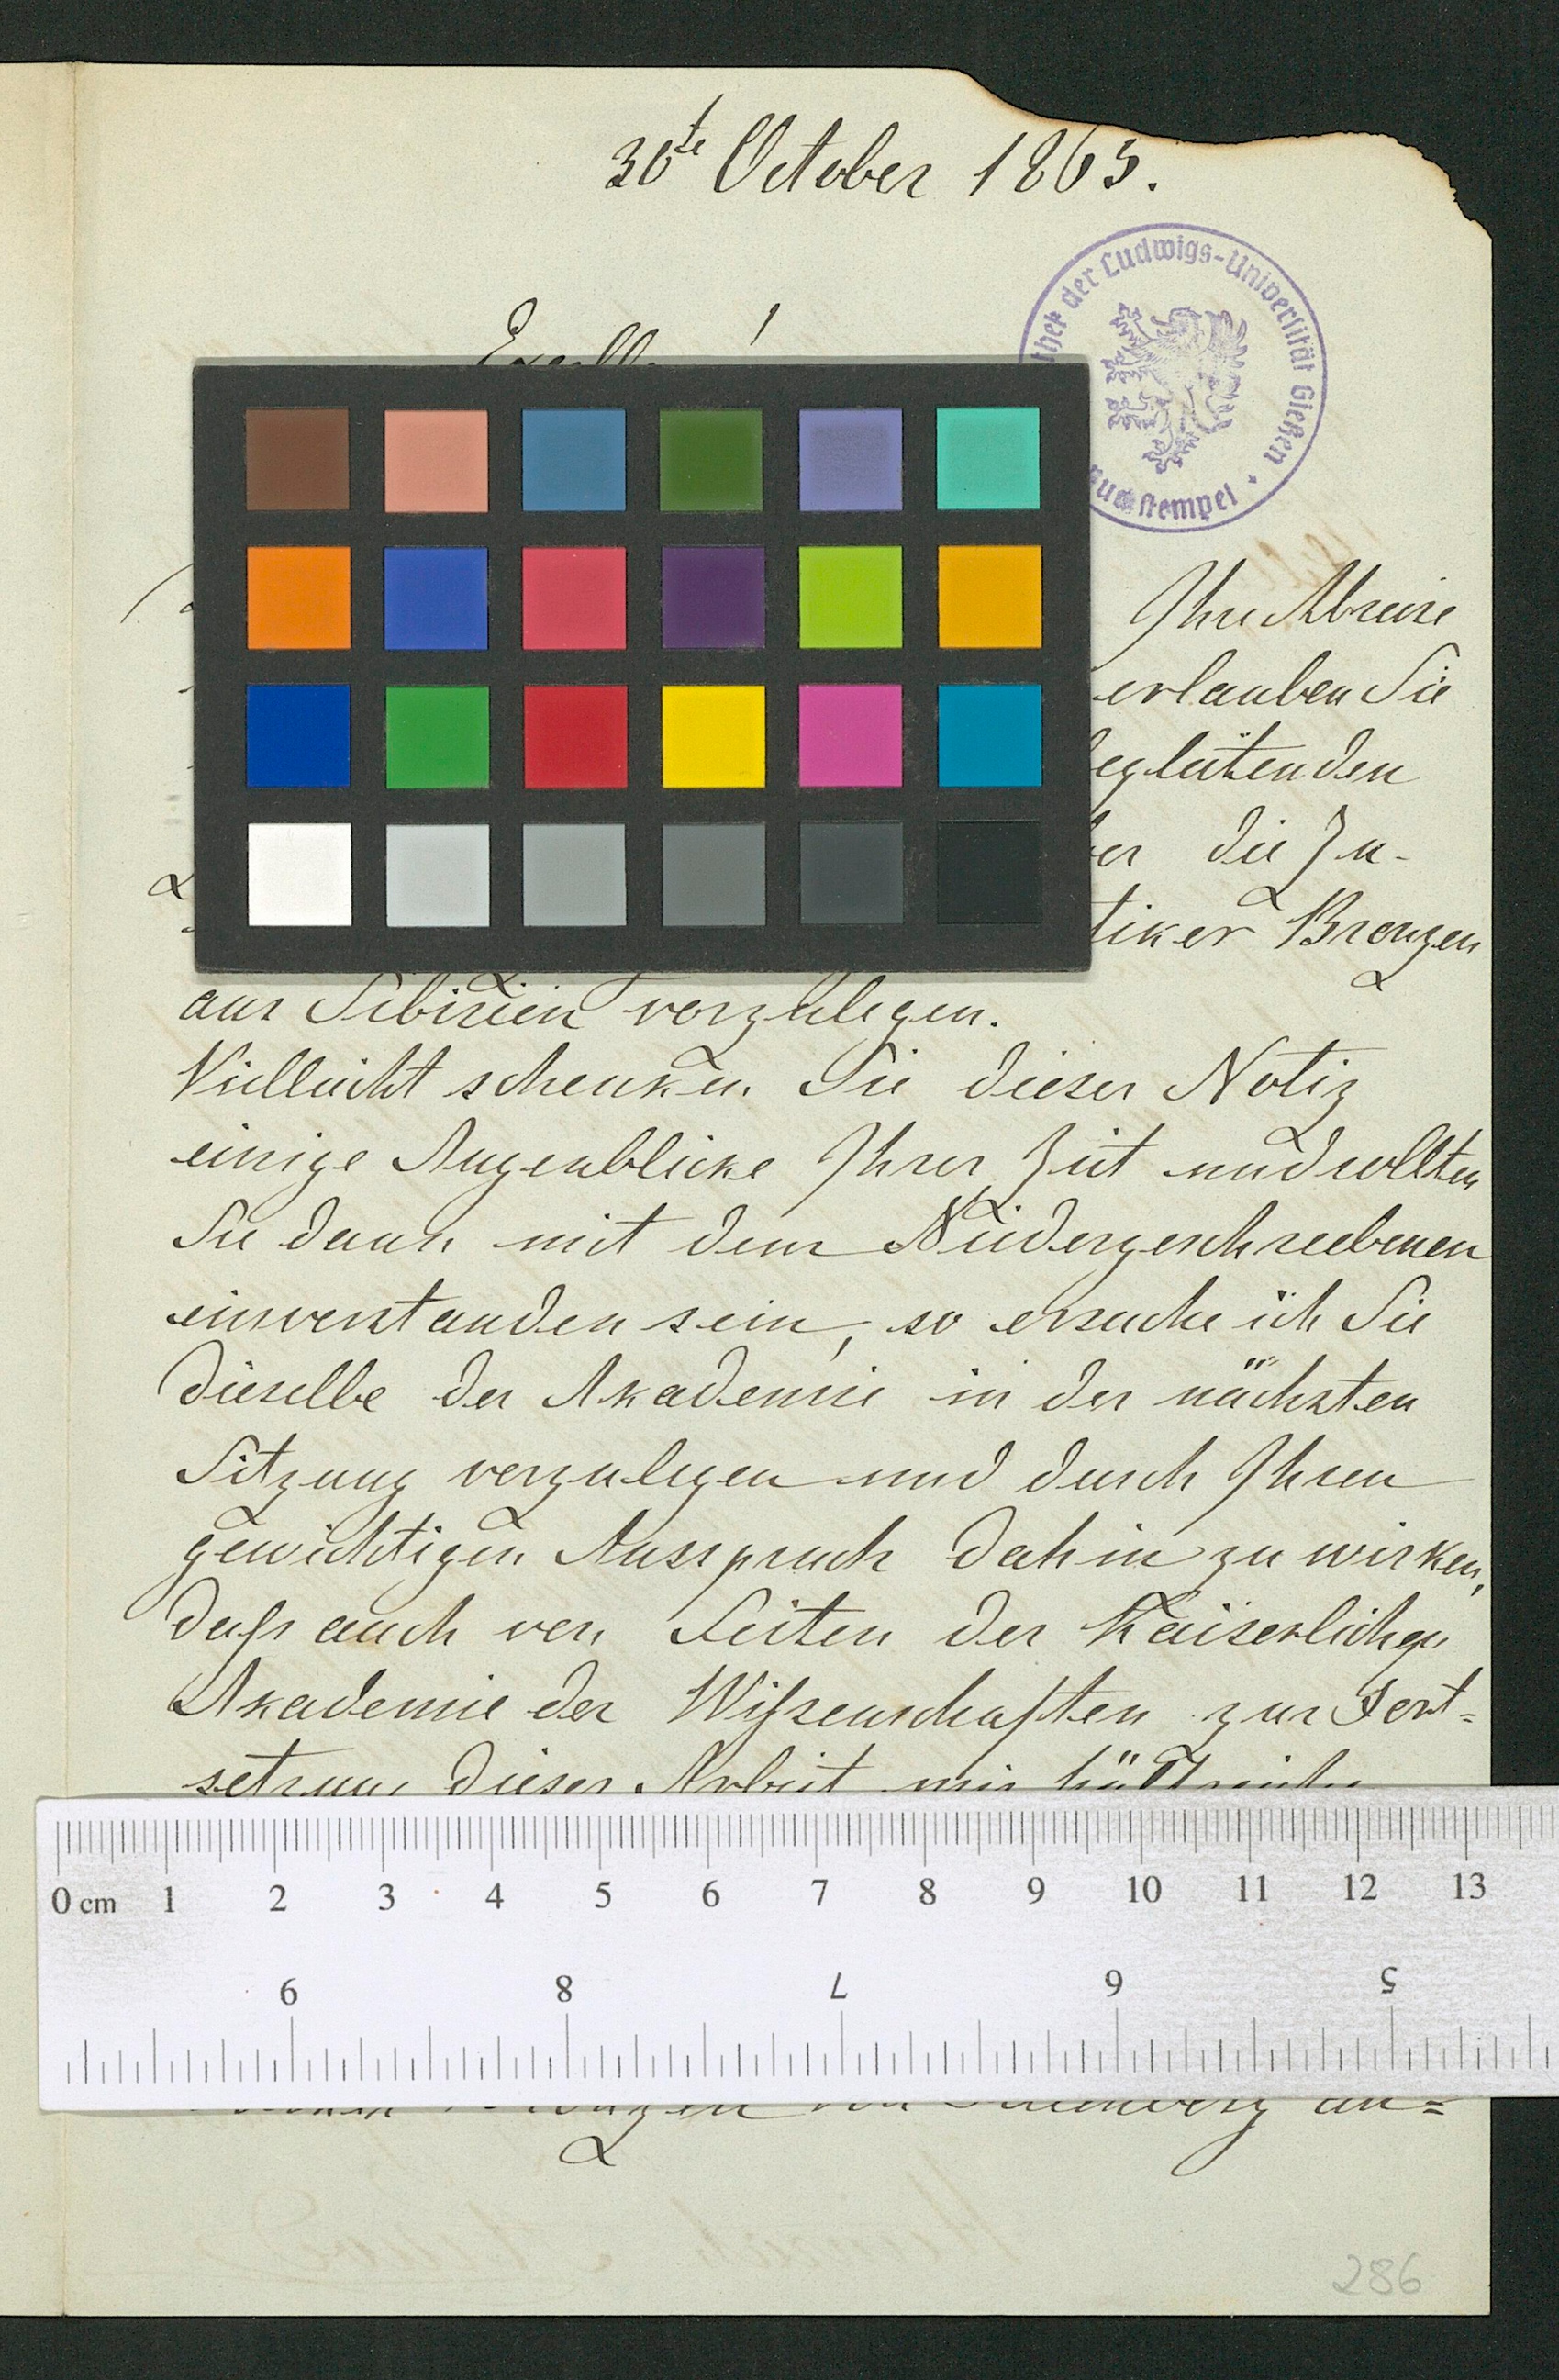 30te October 1865.
thek der Ludwigs-Universität Gießen
stempel
Ihre Abreise
erlauben Sie
begleitenden
die Zu-
tiker Bronzen
aus Sibirien vorzulegen.
Vielleicht schenken Sie dieser Notiz
einige Augenblicke Ihrer Zeit und sollten
Sie dann mit dem Niedergeschriebenen
einverstanden sein, so ersuche ich Sie
dieselbe der Akademie in der nächsten
Sitzung vorzulegen und durch Ihren
gewichtigen Ausspruch dahin zu wirken,
daß auch von Seiten der Kaiserlichen
Akademie der Wißenschaften zur Fort-
setzung dieser Arbeit mir
0 cm 1 2 3 4 5 6 7 8 9 10 11 12 13
9 8 7 6 5
an=
286